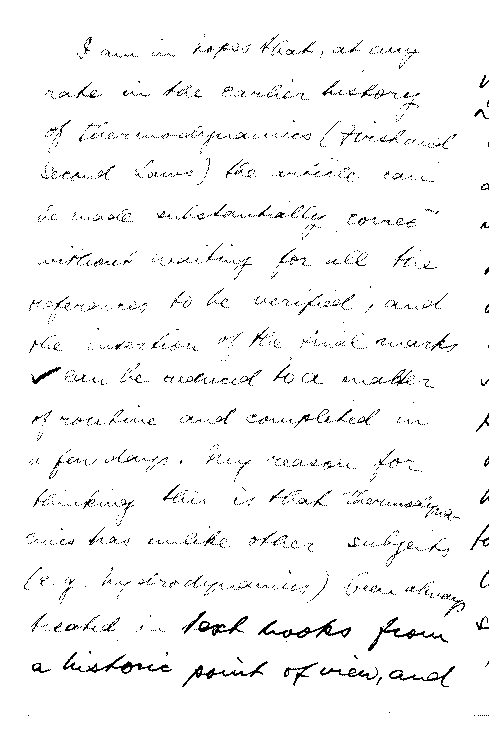 I am in hopes that, at any
rate in the earlier history
of thermodynamics (First and
Second Laws) the article can
be made substantially correct
without waiting for all the
references to be verified, and
the insertion of the final marks
✓ can be reduced to a matter
of routine and completed in
a few days. My reason for
thinking this is that Thermodyna-
mics has unlike other subjects
(e.g. hydrodynamics) been always
treated in text books from
a historic point of view, and